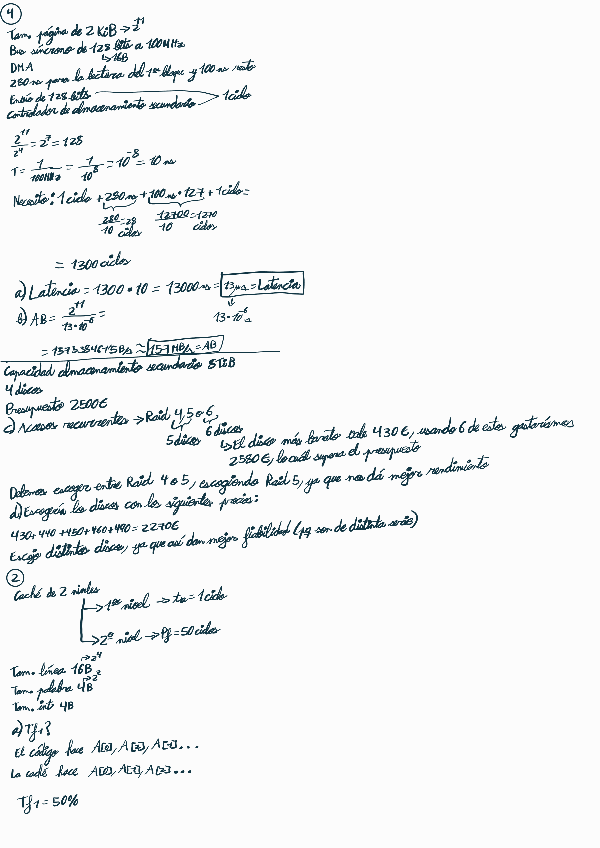 4
Tam. página de 2 KiB → 2^11
Bus síncrono de 128 bits a 100MHz
↳ 16B
DMA
280 ns para la lectura del 1er bloque y 100 ns resto
Envío de 128 bits
Controlador de almacenamiento secundario → 1 ciclo
2^11/2^4 = 2^7 = 128
T = 1/100MHz = 1/10^8 = 10^-8 = 10 ns
Necesito: 1 ciclo + 280 ns + 100 ns · 127 + 1 ciclo =
280/10 = 28 ciclos 12700/10 = 1270 ciclos
= 1300 ciclos
a) Latencia = 1300 · 10 = 13000 ns = 13 μs = Latencia
13·10^-6 s
b) AB = 2^11/13·10^-6 =
= 157538461'5 B/s ≈ 157 MB/s = AB
Capacidad almacenamiento secundario 8TiB
4 discos
Presupuesto 2500€
c) Accesos recurrentes → Raid 4, 5 o 6,
5 discos 6 discos
↳ El disco más barato vale 430€, usando 6 de estos gastaríamos
2580€, lo cual supera el presupuesto
Debemos escoger entre Raid 4 o 5, escogiendo Raid 5, ya que nos dá mejor rendimiento
d) Escogería los discos con los siguientes precios:
430+440+450+460+490 = 2270€
Escojo distintos discos, ya que así dan mejor fiabilidad (pq son de distinta serie)
2
Caché de 2 niveles
→ 1er nivel → ta = 1 ciclo
→ 2º nivel → Pf = 50 ciclos
Tam. línea 16B → 2^4
Tam. palabra 4B → 2^2
Tam. int 4B
a) Tf1?
El código hace A[0], A[2],
La caché hace A[0], A[1], A[2]...
Tf1 = 50%